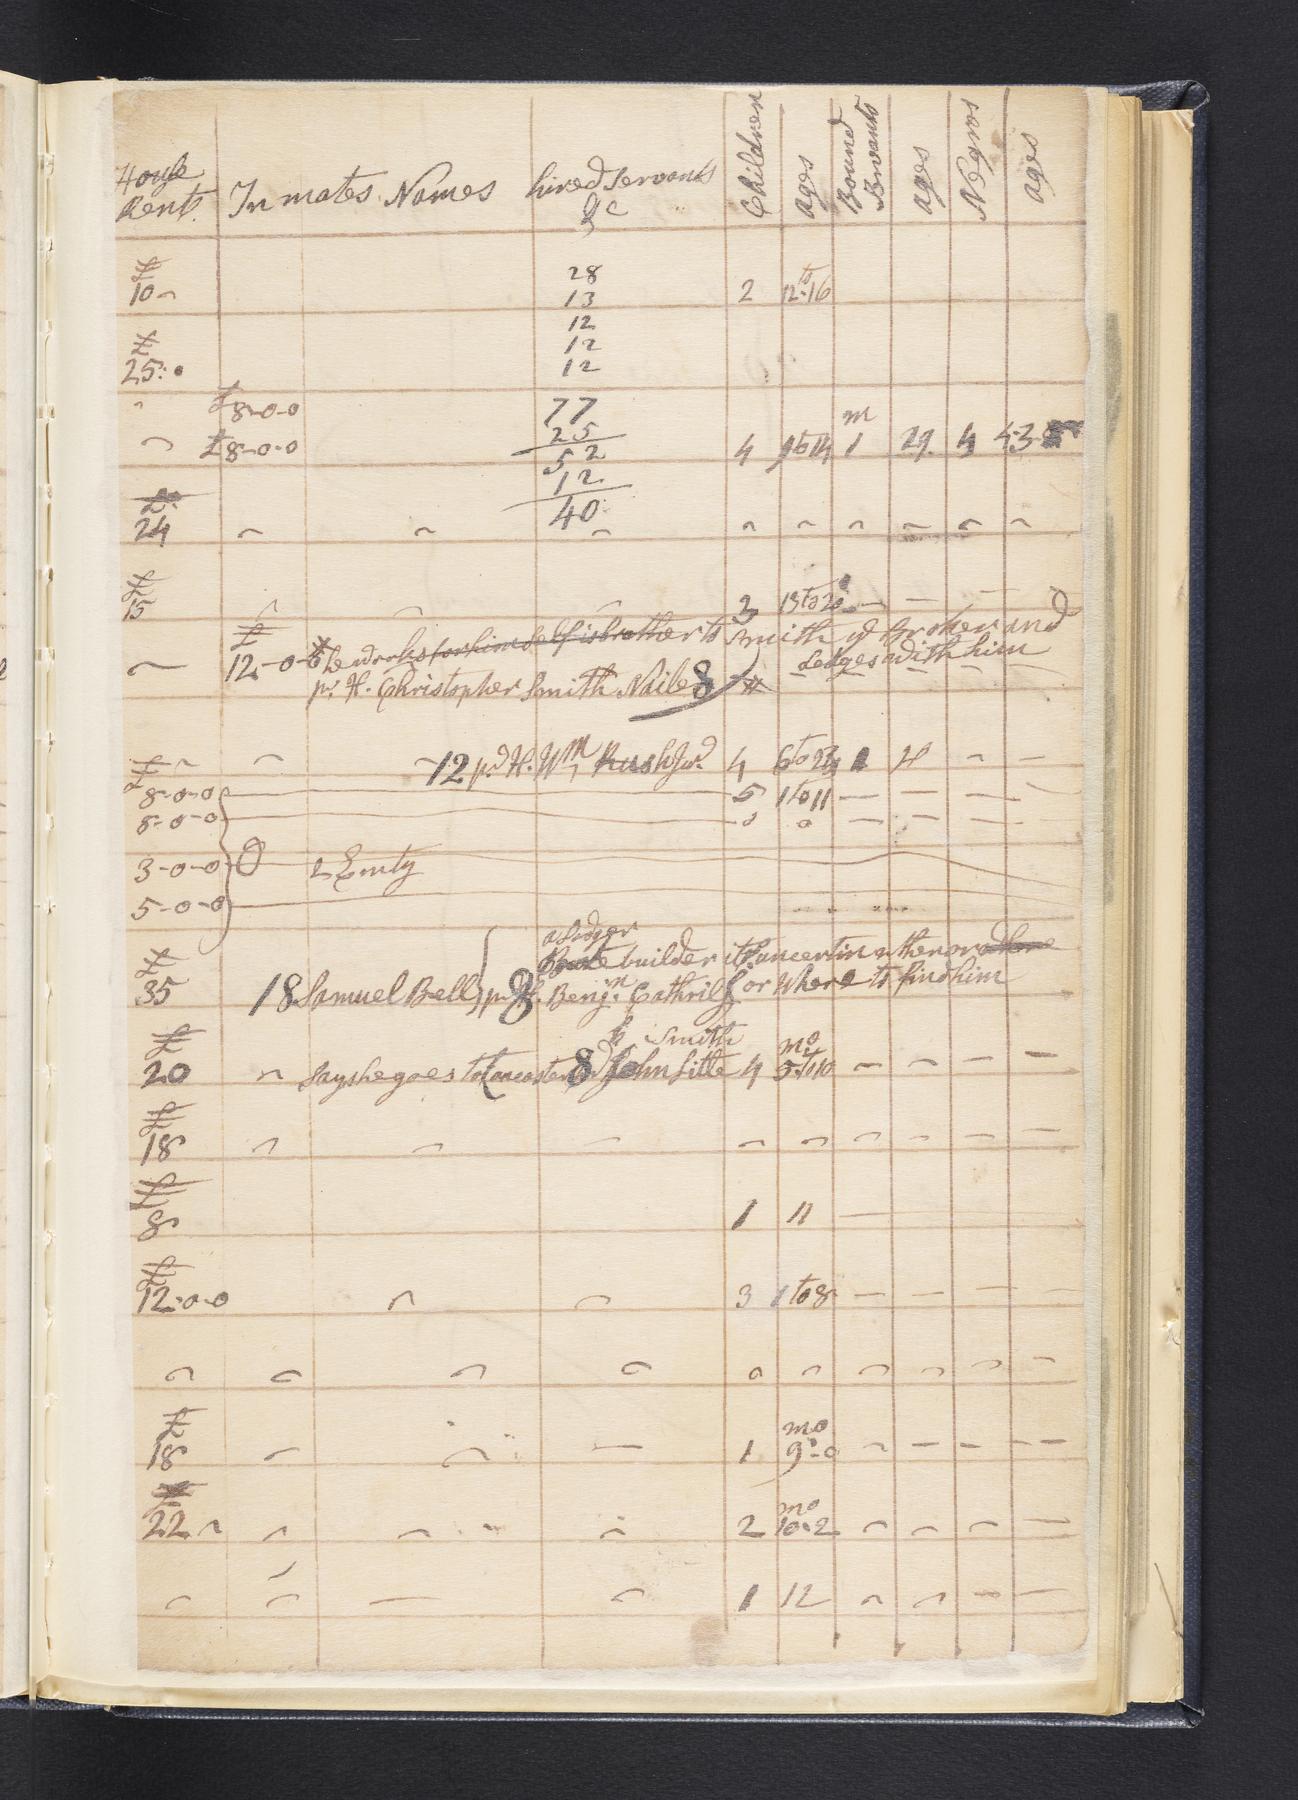 House Rent. Inmates Names hired Servants &c Children ages Bound Servants ages Negros ages
£ 28
10 13 2 12 to 16
12
£ 12
25 12
£8-0-0 77
25 m
£8-0-0 52 4 1 29 4
12
£ 40
24
£
15 3 13 to 20
£ he works for himself is brother to Smith ye Broker and
12-0-0 Lodges with him
pr. H. Christopher Smith Nailer 8
12 pd H. Wm Rush Jur. 4 6 to
£
8-0-0 5 1 to 11
8-0-0 0 0
3-0-0 0 2 Emty
5-0-0
a Lodger
£ builder its uncertin when or
35 18 Samuel Bell pr H. Benjn. 8 or where to find him
£ Smith mo
20 Says he goes to Lancaster 8 John 4 5 to 10
£
18
£
8 1 11
£
12-0-0 3 1 to 8
£ mo
18 1 9-0
£ mo
22 2 10-2
1 12